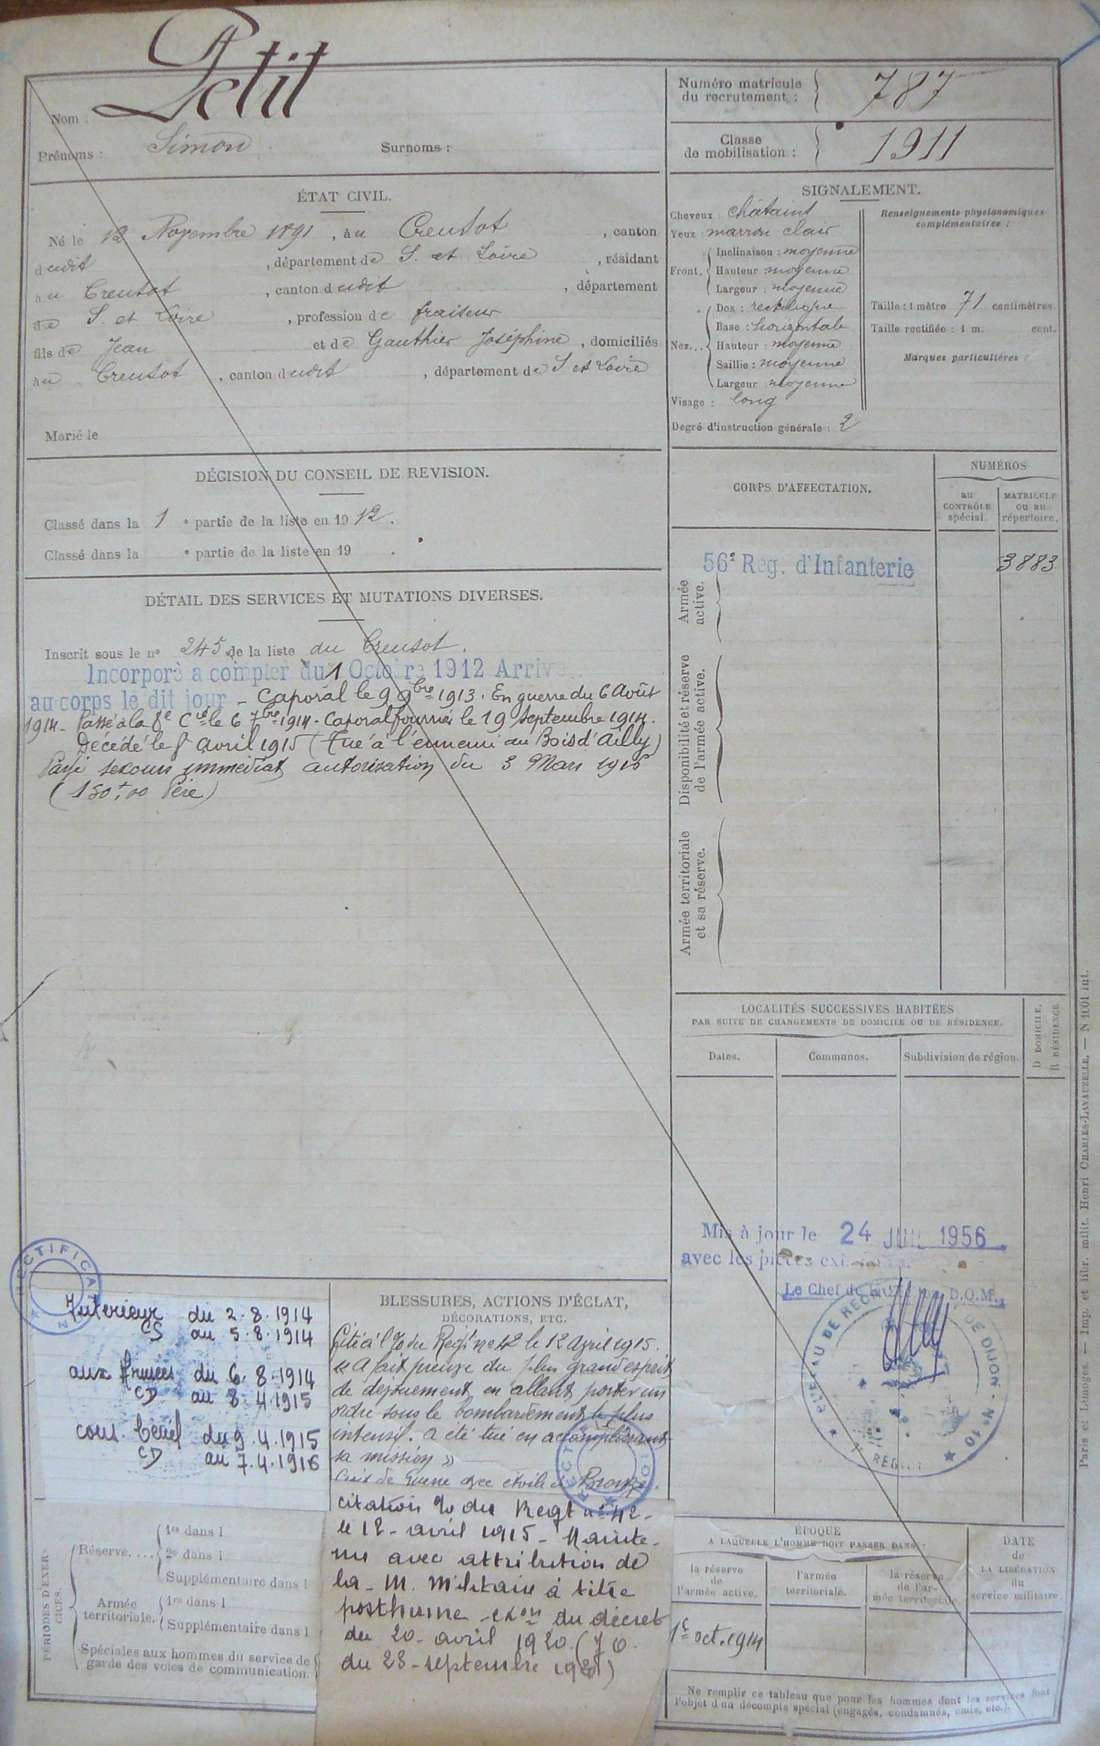 Petit
Nom :
Prénoms : Simon Surnoms :
Numéro matricule
du recrutement : 787
Classe
de mobilisation : 1911
ÉTAT CIVIL.
Né le 12 Novembre 1891, à u Creusot, canton
dudit, département de S. et Loire, résidant
au Creusot, canton dudit, département
de S. et Loire, profession de fraiseur
fils de Jean et de Gauthier Joséphine, domiciliés
au Creusot, canton dudit, département de S et Loire
Marié le
SIGNALEMENT.
Cheveux : châtains
Yeux marron clair
Front. Inclinaison : moyenne
Hauteur moyenne
Largeur : moyenne
Nez... Dos : rectiligne
Base : horizontale
Hauteur : moyenne
Saillie : moyenne
Largeur moyenne
Visage : long
Degré d'instruction générale : 2
Renseignements physionomiques
complémentaires :
Taille : 1 mètre 71 centimètres.
Taille rectifiée : 1 m. cent.
Marques particulières :
DÉCISION DU CONSEIL DE REVISION.
Classé dans la 1 e partie de la liste en 1912.
Classé dans la e partie de la liste en 19 .
DÉTAIL DES SERVICES ET MUTATIONS DIVERSES.
Inscrit sous le n° 245 de la liste du Creusot.
Incorporé à compter du 1 Octobre 1912 Arrivé
au corps le dit jour - Caporal le 9 9bre 1913. En guerre du 6 Août
1914 - Passé à la 8e Cie le 6 7bre 1914 - Caporal fourrier le 19 Septembre 1914.
Décédé le 8 avril 1915 (Tué à l'ennemi au Bois d'Ailly)
Payé secours immédiat autorisation du 3 Mars 1916
(150f,00 Père)
CORPS D'AFFECTATION.
NUMÉROS
au
CONTRÔLE
spécial.
MATRICULE
OU AU
répertoire.
56e Rég. d'Infanterie 3883
Armée
active.
Disponibilité et réserve
de l'armée active.
Armée territoriale
et sa réserve.
LOCALITÉS SUCCESSIVES HABITÉES
PAR SUITE DE CHANGEMENTS DE DOMICILE OU DE RÉSIDENCE.
Dates. Communes. Subdivision de région.
D DOMICILE.
R RÉSIDENCE
Mis à jour le 24 JUIL 1956
avec les pièces
Le Chef de D.O.M.
BUREAU DE RECRUTEMENT DE DIJON - N° 10
RECTIFICA
Intérieur du 2.8.1914
CS au 5.8.1914
aux Armées du 6.8.1914
CD au 8.4.1915
CD du 9.4.1915
au 7.4.1916
BLESSURES, ACTIONS D'ÉCLAT,
DÉCORATIONS, ETC.
Cité à l'O/ du Régt n° 42 le 12 avril 1915.
"A fait preuve du plus grand esprit
de dévouement en allant porter un
ordre sous le bombardement le plus
intense. A été tué en accomplissant
sa mission »
Croix de Guerre avec étoile de Bronze.
citation O/ du Regt n° 42 -
le 12 - avril 1915 - Mainte-
nue avec attribution de
la - M. Militaire à titre
posthume - du décret
du 20 - avril 1920. (J O.
du 23 - septembre 1920)
PÉRIODES D'EXER-
CICES.
Réserve.... 1re dans l
2e dans l
Supplémentaire dans l
Armée
territoriale. 1re dans l
Supplémentaire dans l
Spéciales aux hommes du service de
garde des voies de communication.
ÉPOQUE
A LAQUELLE L'HOMME DOIT PASSER DANS :
la réserve
de
l'armée active.
l'armée
territoriale.
la réserve
de l'ar-
mée territoriale
DATE
de
LA LIBÉRATION
du
service militaire
1er oct. 1914
Ne remplir ce tableau que pour les hommes dont les services font
l'objet d'un décompte spécial (engagés, condamnés, omis, etc.).
Paris et Limoges. — Imp. et libr. milit. Henri CHARLES-LAVAUZELLE. — N 1001 int.